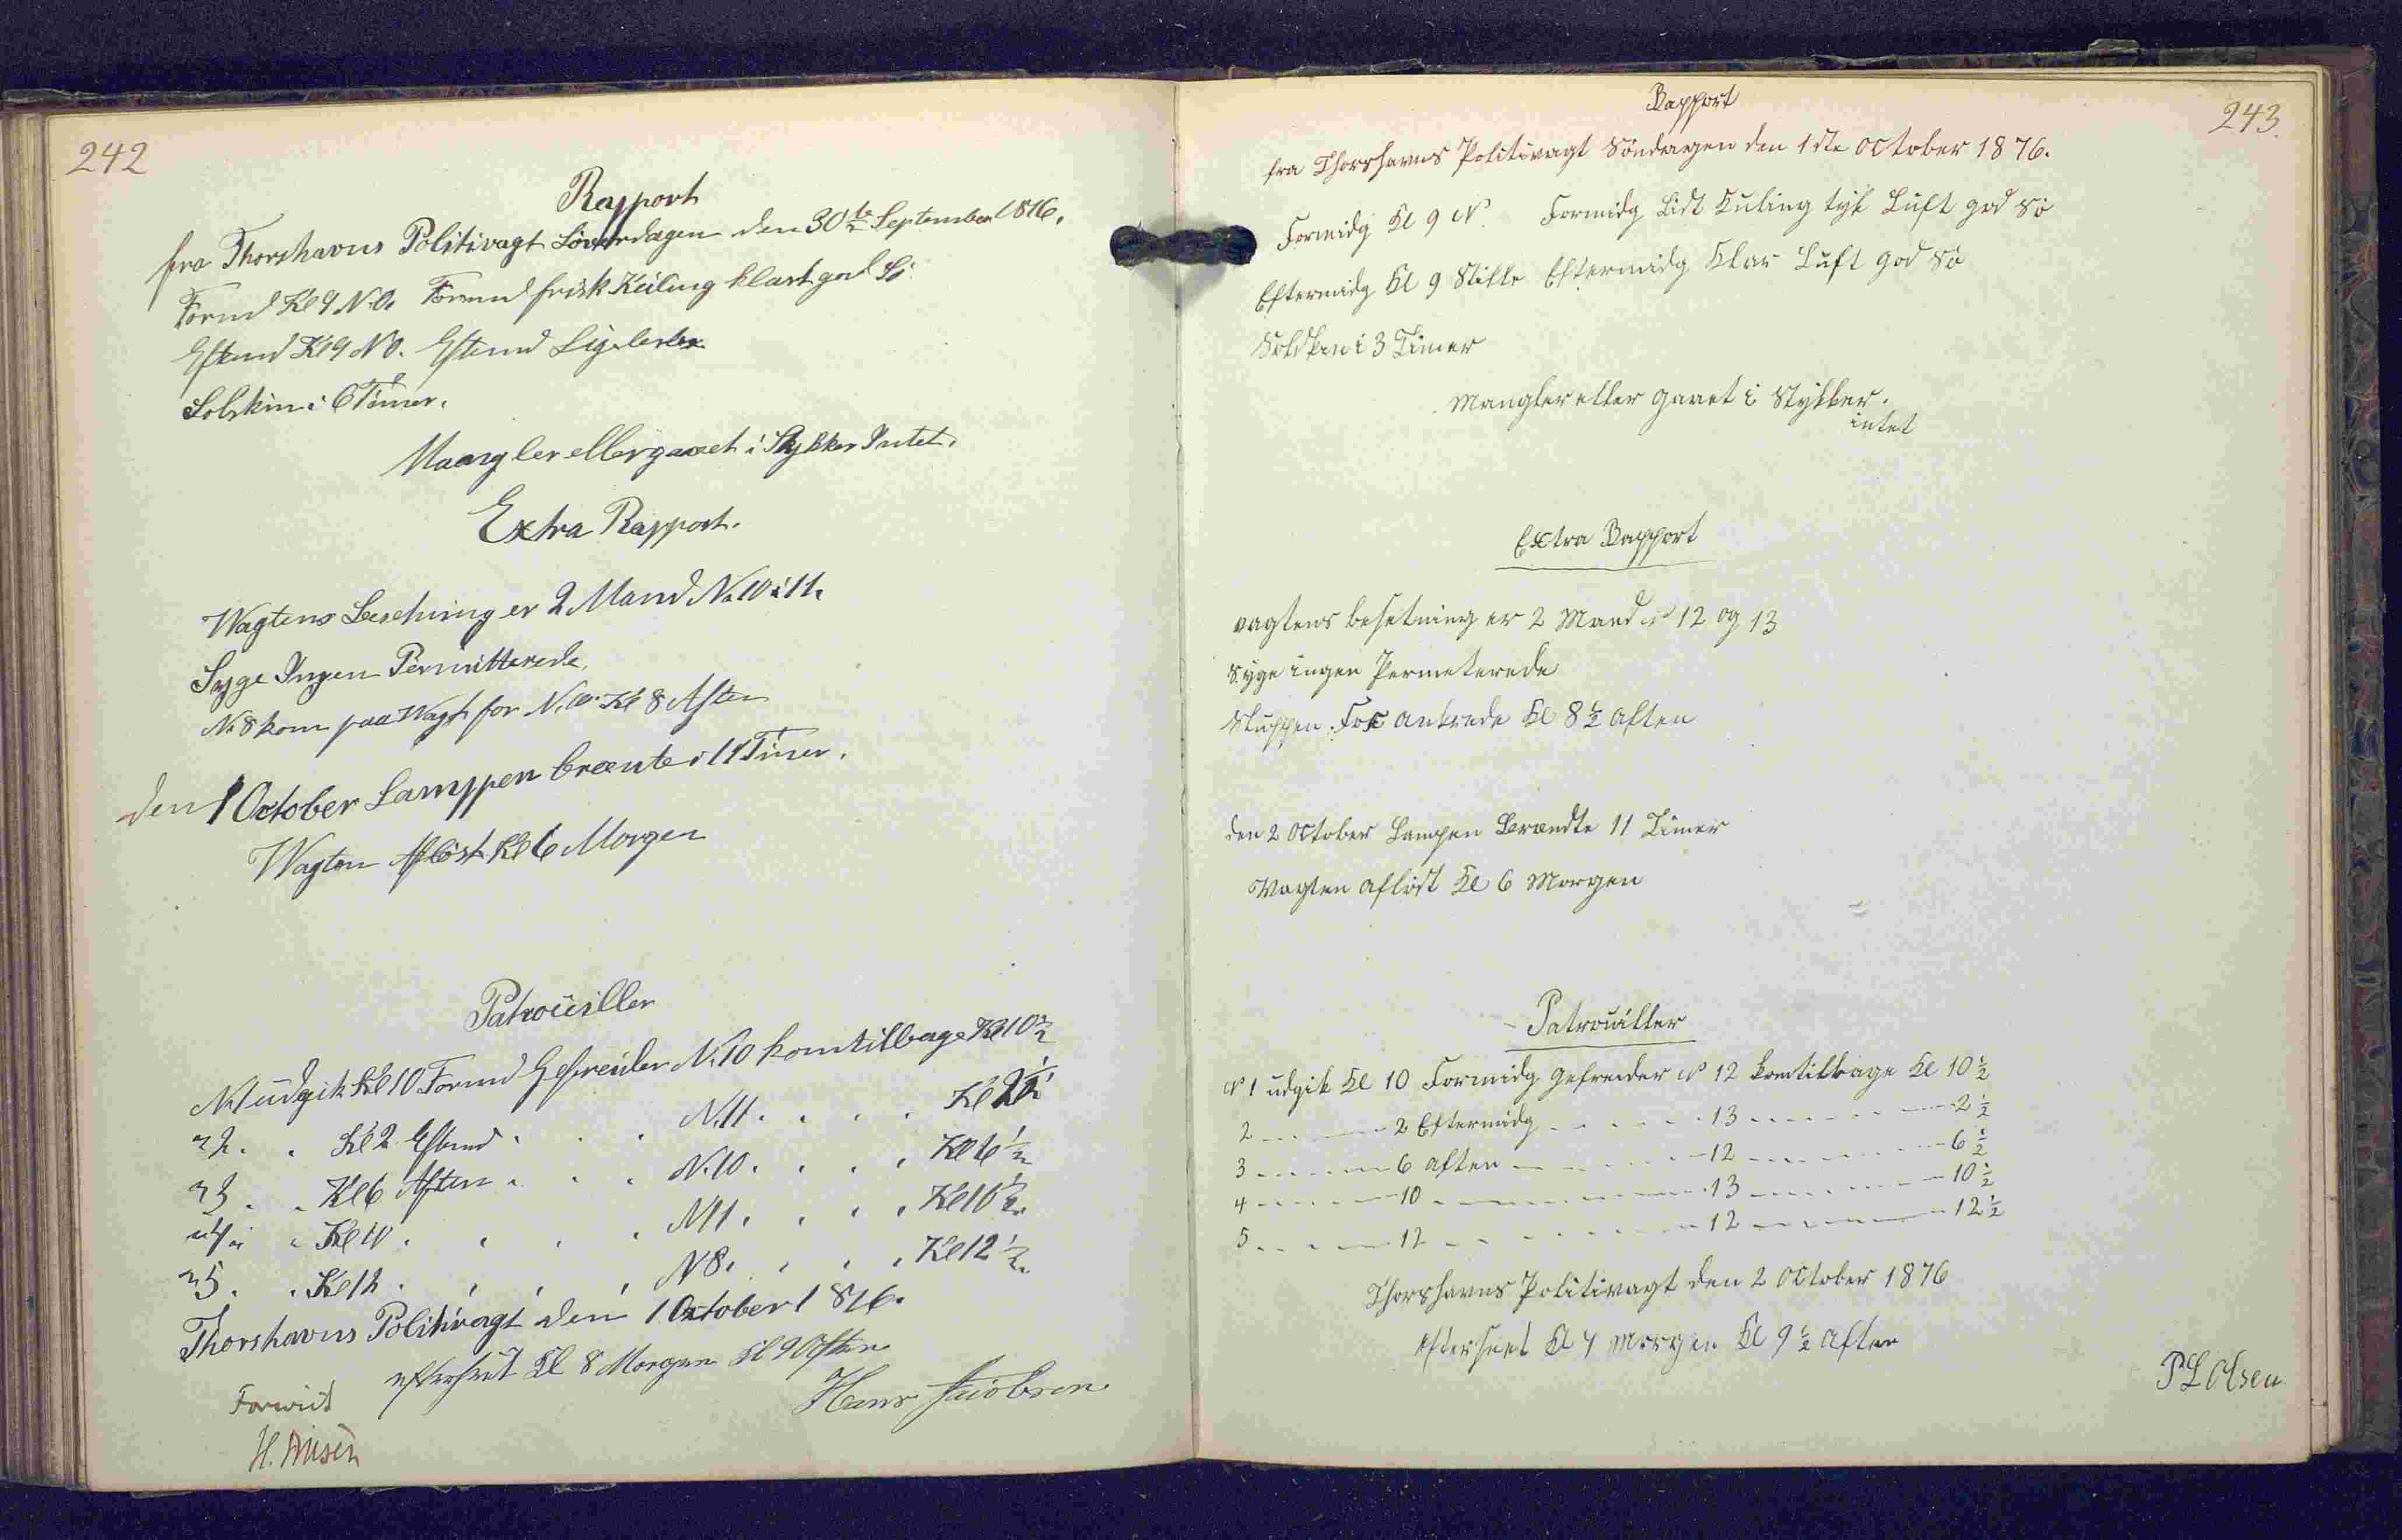 242
Rapport
fra Thorshavns Politivagt Löverdagen den 30te September 1876.
Formd Kl 9 N.O. Formd frisk Kuling klart god Sö
Eftmd Kl 9 NO. Eftmd Ligeledes
Solskin i 6 Timer.
Maangler eller gaaet i Stykker Intet.
Extra Rapport.
Wagtens Besetning er 2 Mand No 10 i 11.
Syge Ingen Permitterede.
No 8 kom paa Wagt for N. 10 Kl 8 Aften
den 1 October Lamppen brænte i 11 Timer.
Wagten Aflöst Kl 6 Morgen
Patrouiller
N. 1 udgik Kl 10 Formd Gefreider N. 10 kom tilbage Kl 10 ½
" 2. . Kl 2 Eftmd . . . N. 11. . . . Kl 2 ½
" 3. . Kl 6 Aften . . . N. 10. . . . Kl 6 ½
" 4. . Kl 10 . . . . N 11. . . . Kl 10 ½
" 5. . Kl 12 . . . . N 8. . . . Kl 12 ½
Thorshavns Politivagt den 1 October 1876.
efterseet Kl 8 Morgen Kl 9 Aften
Hans Jacobsen
Forvist
H.
243.
Rapport
fra Thorshavns Politivagt Söndagen den 1ste October 1876.
Formidg Kl 9 N. Formidg Lidt Kuling tyk Luft god Sö
Eftermidg Kl 9 Stille Eftermidg Klar Luft god Sö
Solskin i 3 Timer
Mangler eller gaaet i Stykker.
intet
Extra Rapport
vagtens besetning er 2 Mand N 12 og 13
Syge ingen Permeterede
Sluppen Fox ankrede Kl 8 ½ aften
den 2 October Lampen Brændte 11 Timer
Vagten aflöst Kl 6 Morgen
Patrouiller
N 1 udgik Kl 10 Formidg gefreider N 12 kom tilbage Kl 10 ½
2 - - - - 2 Eftermidg - - - - 13 - - - - 2 ½
3 - - - - 6 aften - - - - 12 - - - - 6 ½
4 - - - - 10 - - - - 13 - - - - 10 ½
5 - - - - 12 - - - - 12 - - - - 12 ½
Thorshavns Politivagt den 2 October 1876
Efterseet Kl 7 Morgen Kl 9 ½ Aften
P L Olsen